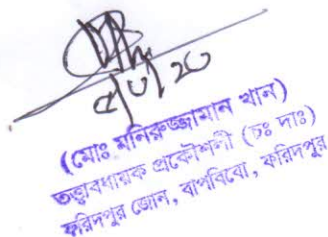 (মোঃ মনিরুজ্জামান খান)
তত্ত্বাবধায়ক প্রকৌশলী (চঃ দাঃ)
ফরিদপুর জোন, বাপবিবো, ফরিদপুর